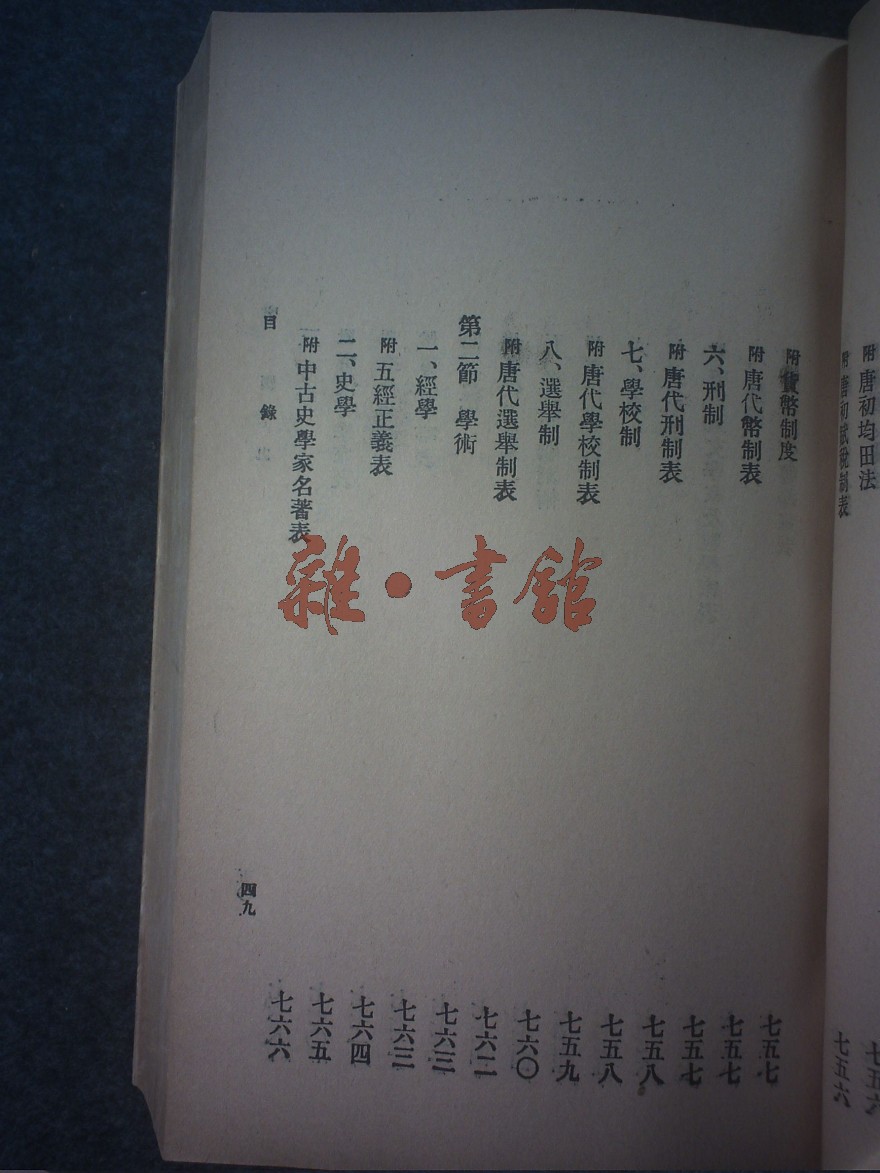 附 唐初均田法 七五六
附 唐初賦稅制表 七五六
附 貨幣制度 七五七
附 唐代幣制表 七五七
六、刑制 七五七
附 唐代刑制表 七五八
七、學校制 七五八
附 唐代學校制表 七五九
八、選舉制 七六〇
附 唐代選舉制表 七六二
第二節 學術 七六三
一、經學 七六三
附 五經正義表 七六四
二、史學 七六五
附 中古史學家名著表 七六六
目錄 四九
雜·書館